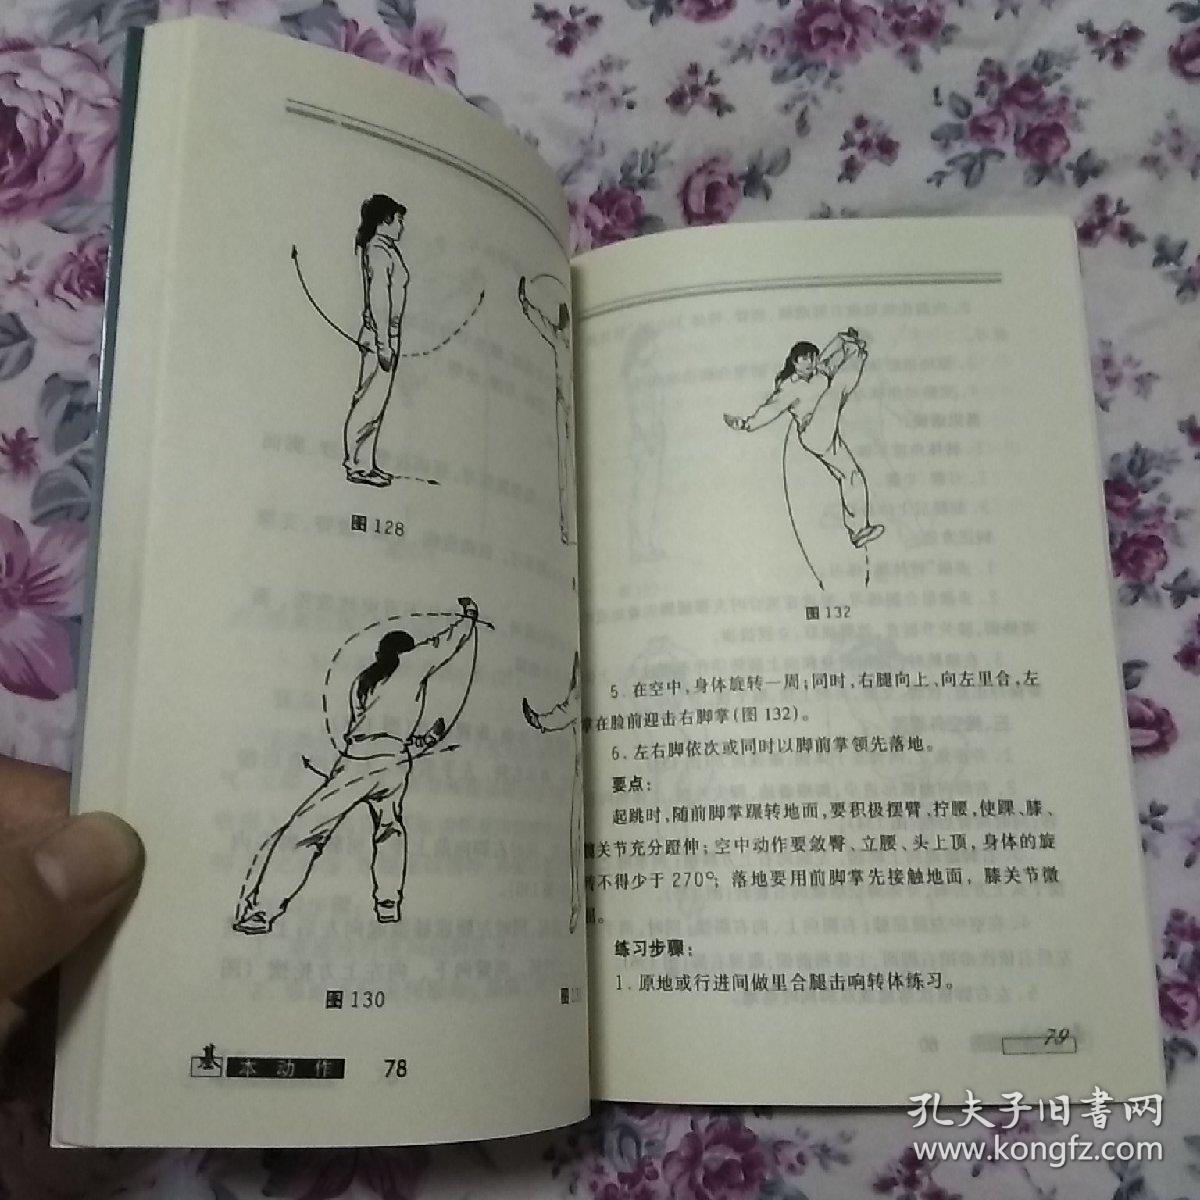 图128
图130
图
基本动作 78
图132
5．在空中，身体旋转一周；同时，右腿向上、向左里合，左
掌在脸前迎击右脚掌（图132）。
6．左右脚依次或同时以脚前掌领先落地。
要点：
起跳时，随前脚掌蹍转地面，要积极摆臂，拧腰，使踝、膝、
髋关节充分蹬伸；空中动作要敛臀、立腰、头上顶，身体的旋
转不得少于270°；落地要用前脚掌先接触地面，膝关节微
屈。
练习步骤：
1．原地或行进间做里合腿击响转体练习。
79
孔夫子旧书网
www.kongfz.com